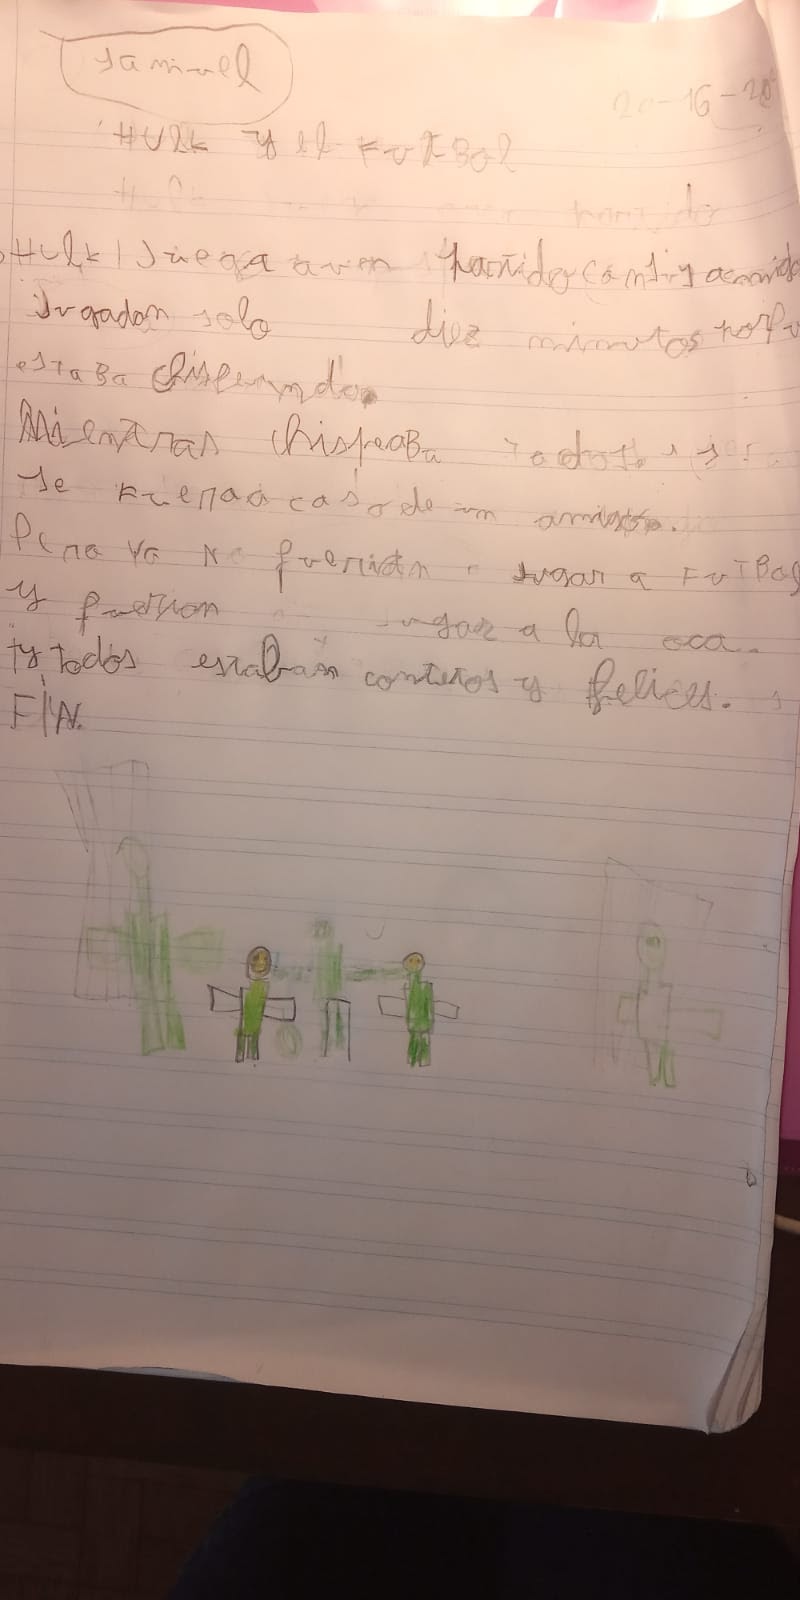 samuel
20-16-20
HUlk y el FutBol
Hulk
partido
HUlk Juega a un partido con su
Jugadan solo diez minutos porq
estaBa chispeando.
Mientras chispeaBa todos
se fueron a casa de un amigo.
Pero ya no querian jugar a FUTBOl
y fueron jugar a la oca.
y todos estaban contetos y felices.
FIN.